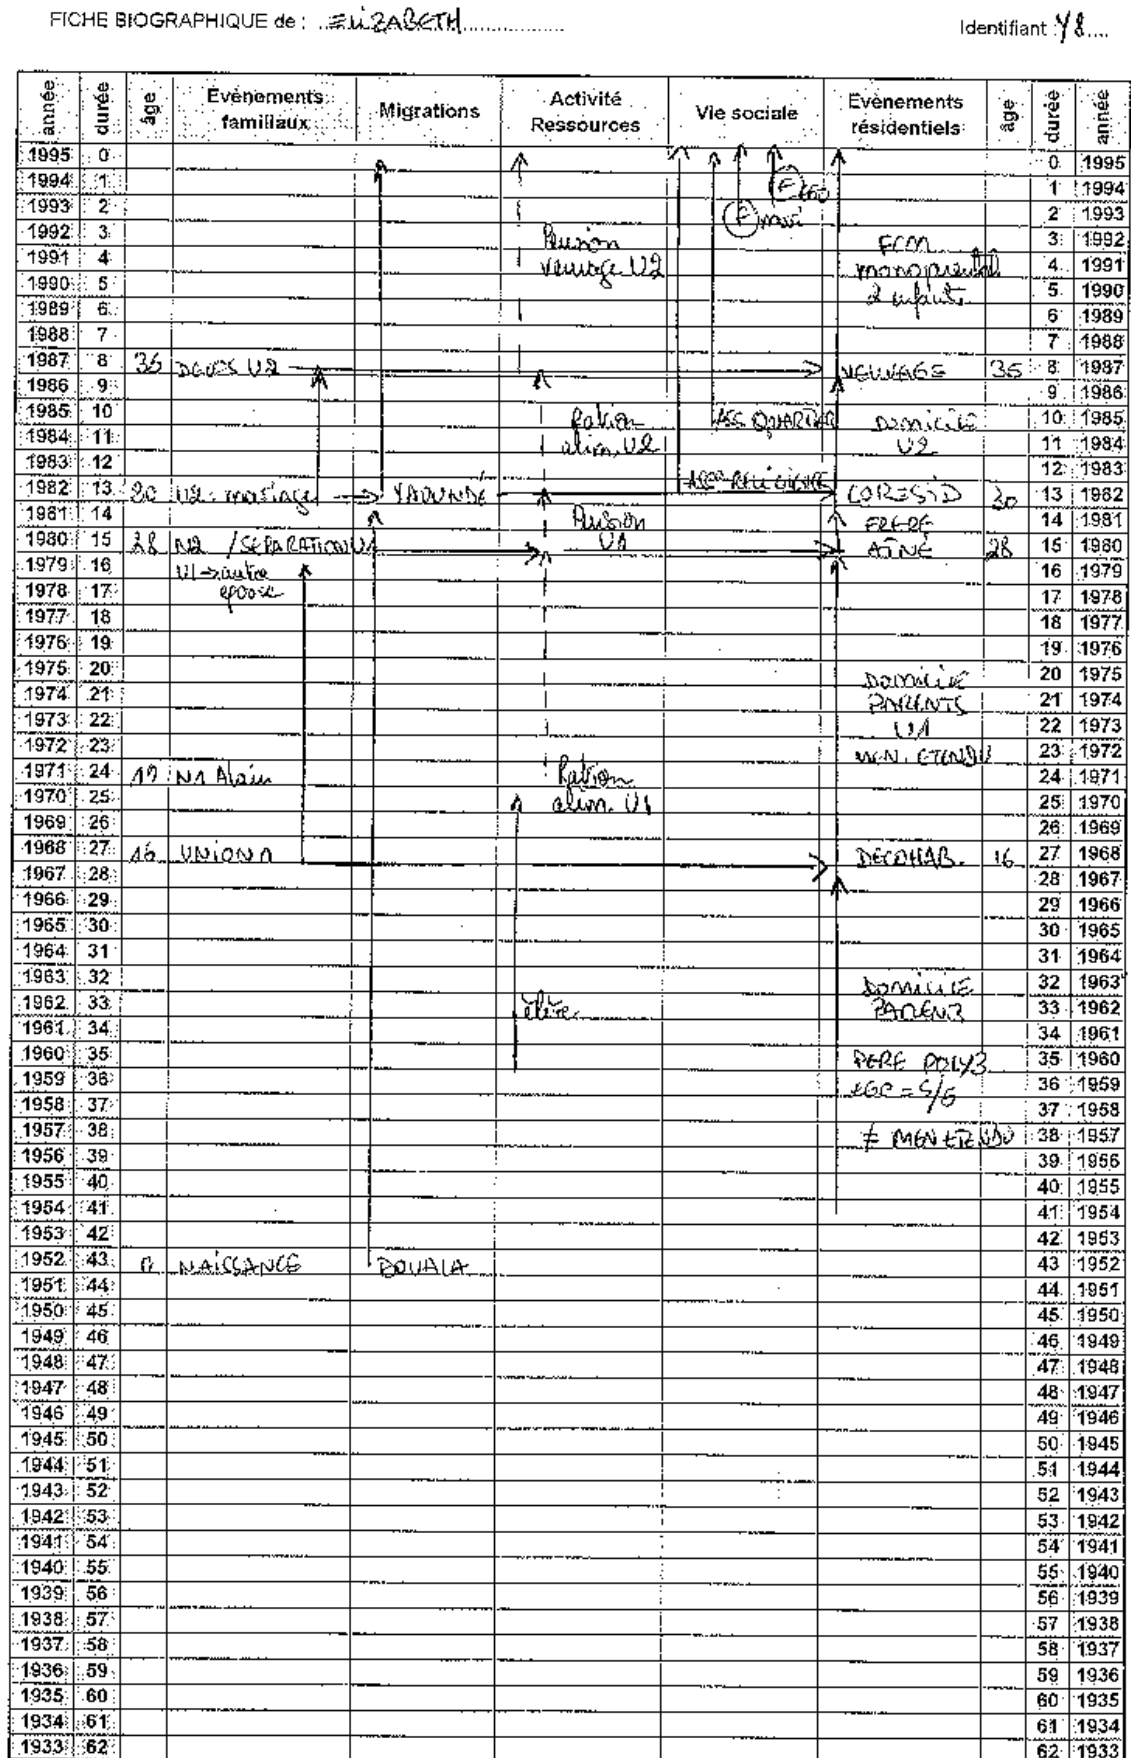 FICHE BIOGRAPHIQUE de : ELIZABETH
Identifiant : Y8
année durée âge Evènements familiaux Migrations Activité Ressources Vie sociale Evènements résidentiels âge durée année
1995 0 0 1995
1994 1 F 1 1994
1993 2 F 2 1993
1992 3 Pension 3 1992
1991 4 veuvage U2 monoparental 4 1991
1990 5 2 enfants 5 1990
1989 6 6 1989
1988 7 7 1988
1987 8 35 DECES U2 VEUVAGE 35 8 1987
1986 9 9 1986
1985 10 Ration ASS QUARTIER DOMICILE 10 1985
1984 11 alim. U2 U2 11 1984
1983 12 12 1983
1982 13 U2 : mariage YAOUNDE ASS° RELIGIEUSE CORESID 30 13 1982
1981 14 Pension FRERE 14 1981
1980 15 28 N2 / SEPARATION U1 U1 AÎNÉ 28 15 1980
1979 16 U1 → autre 16 1979
1978 17 épouse 17 1978
1977 18 18 1977
1976 19 19 1976
1975 20 DOMICILE 20 1975
1974 21 PARENTS 21 1974
1973 22 U1 22 1973
1972 23 MEN. ETENDU 23 1972
1971 24 19 N1 Alain Ration 24 1971
1970 25 alim. U1 25 1970
1969 26 26 1969
1968 27 16 UNION 1 DECOHAB. 16 27 1968
1967 28 28 1967
1966 29 29 1966
1965 30 30 1965
1964 31 31 1964
1963 32 DOMICILE 32 1963
1962 33 élève PARENT 33 1962
1961 34 34 1961
1960 35 PERE POLY3 35 1960
1959 36 = 5/6 36 1959
1958 37 37 1958
1957 38 ≠ MEN ETENDU 38 1957
1956 39 39 1956
1955 40 40 1955
1954 41 41 1954
1953 42 42 1953
1952 43 0 NAISSANCE DOUALA 43 1952
1951 44 44 1951
1950 45 45 1950
1949 46 46 1949
1948 47 47 1948
1947 48 48 1947
1946 49 49 1946
1945 50 50 1945
1944 51 51 1944
1943 52 52 1943
1942 53 53 1942
1941 54 54 1941
1940 55 55 1940
1939 56 56 1939
1938 57 57 1938
1937 58 58 1937
1936 59 59 1936
1935 60 60 1935
1934 61 61 1934
1933 62 62 1933